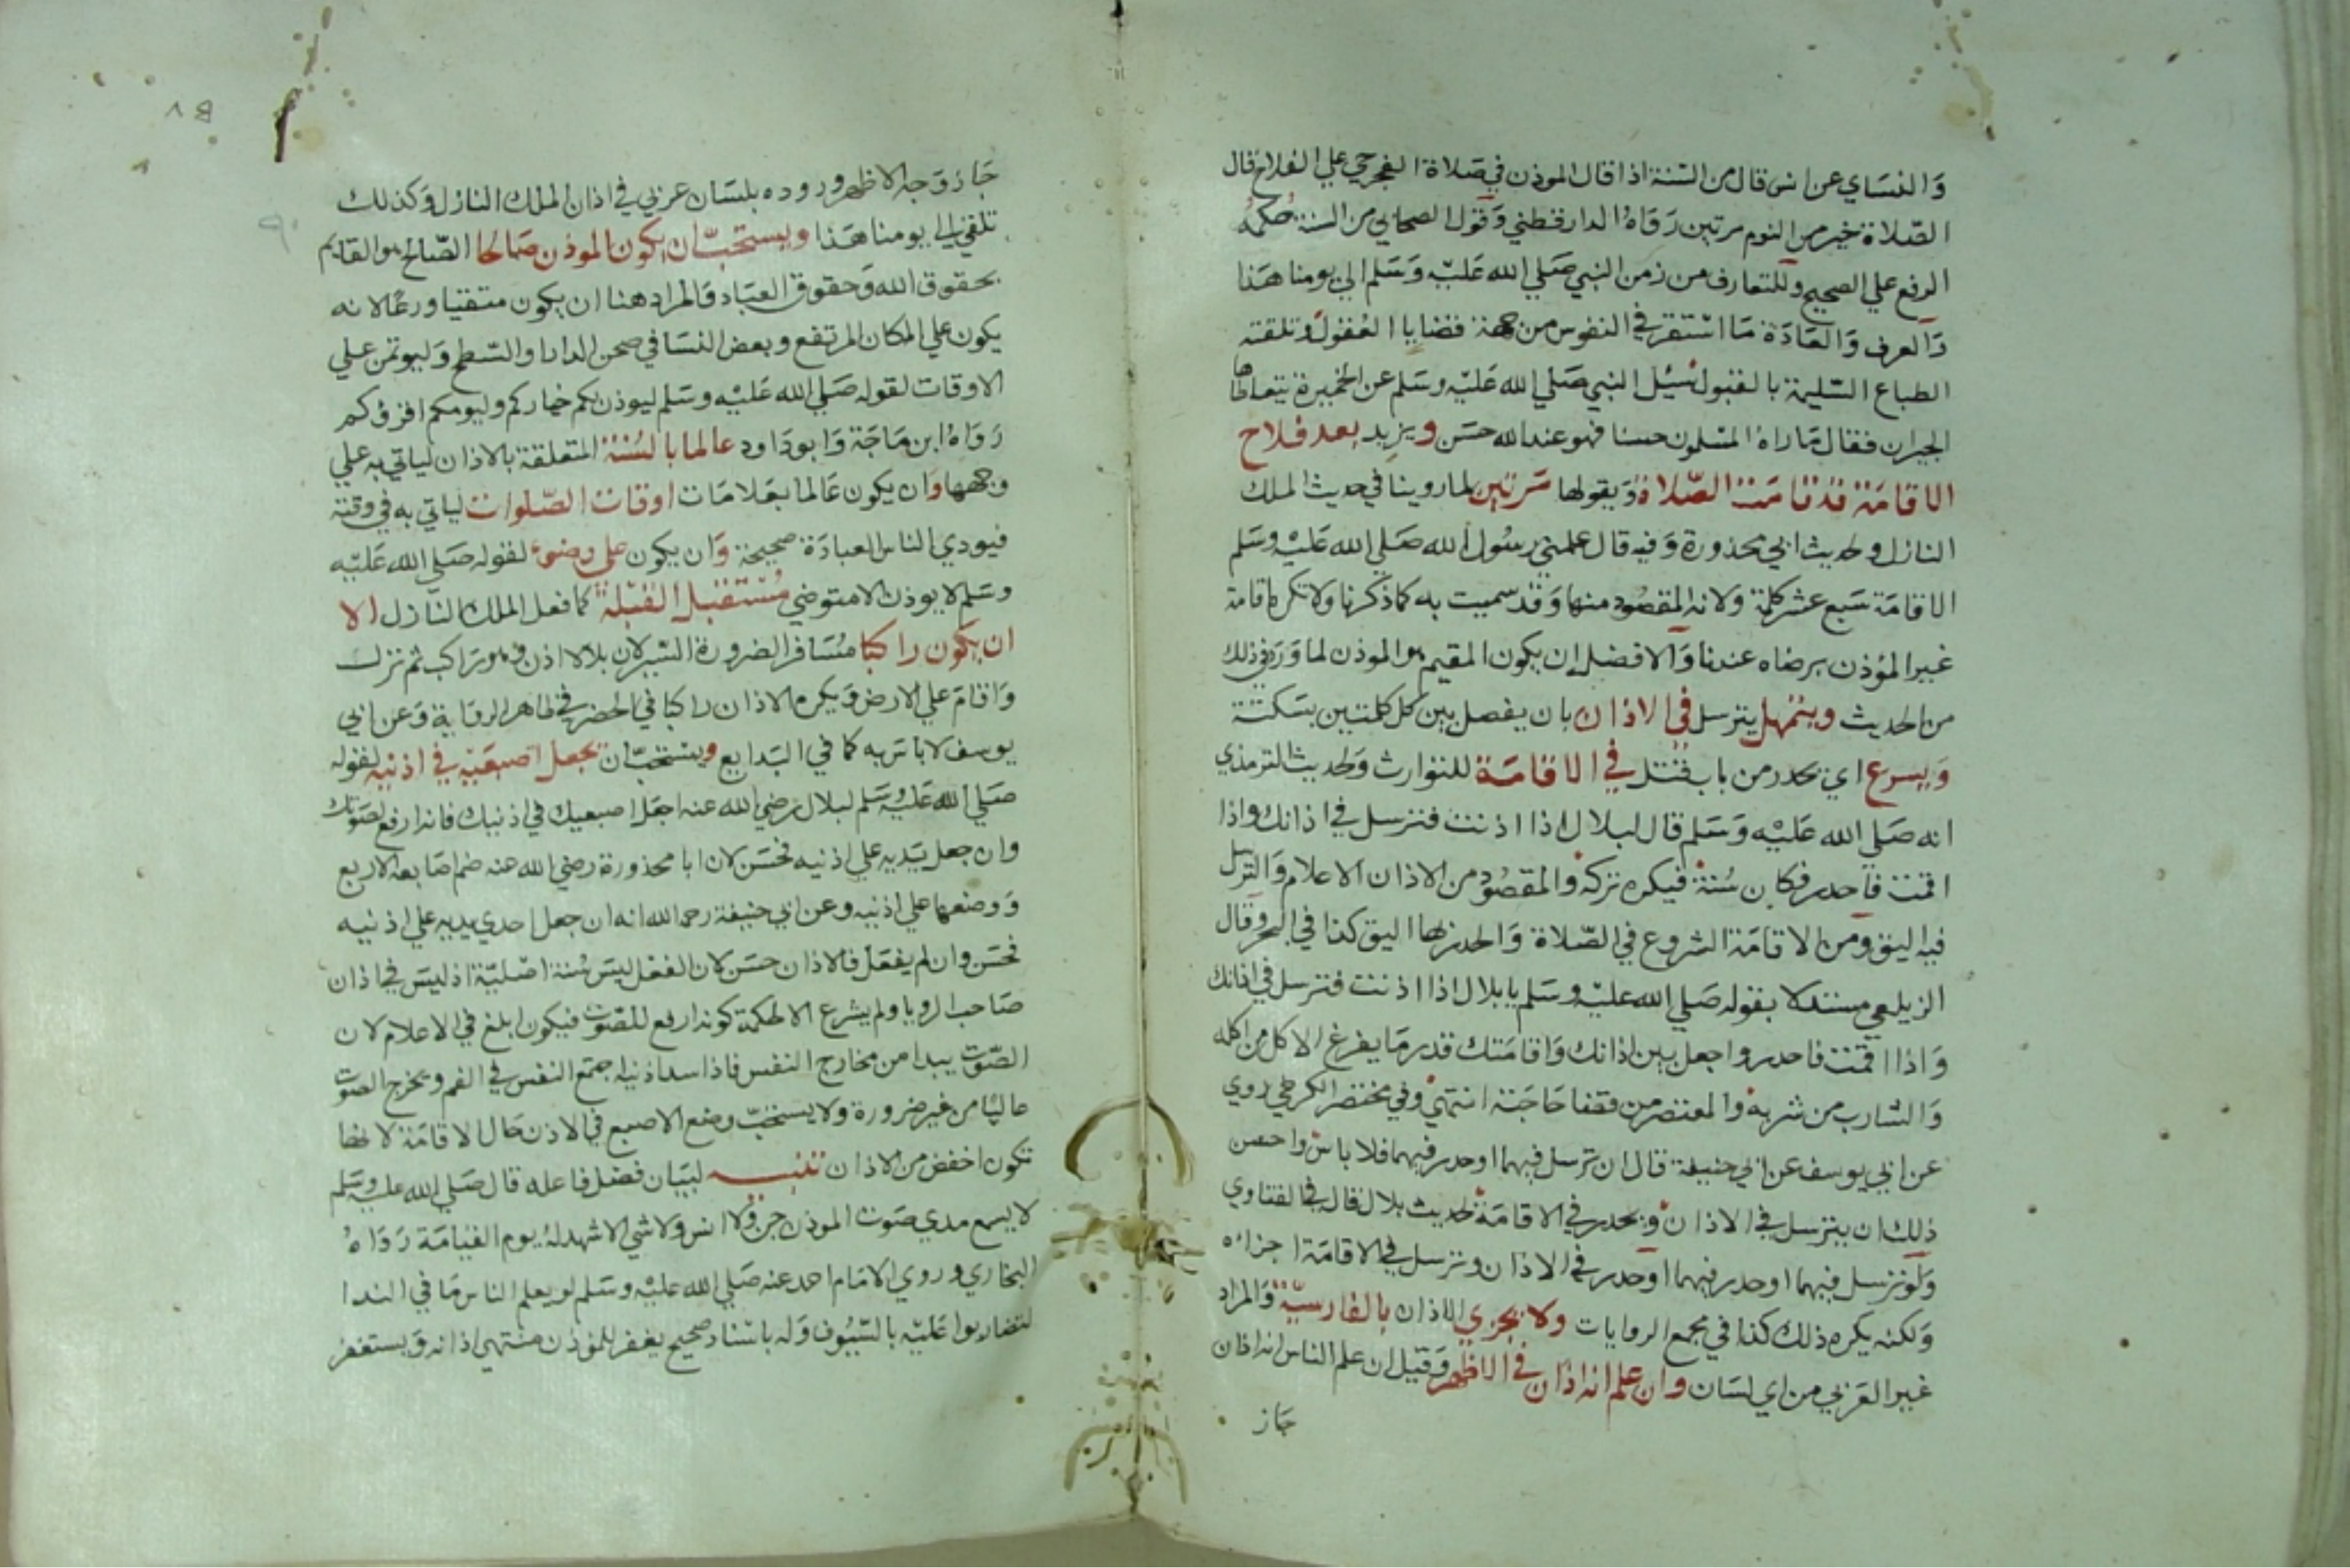 والنساي عن انس قال من السنة اذا قال الموذن في صلاة الفجر حي علي الفلاح قال
الصلاة خير من النوم مرتين رواه الدارقطني وقول الصحابي من السنة حكمه
الرفع علي الصحيح وللتعارف من زمن النبي صلي الله عليه وسلم الي يومنا هذا
والعرف والعادة ما استقر في النفوس من جهة قضايا العقول وتلقته
الطباع السليمة بالقبول سيل النبي صلي الله عليه وسلم عن الخميرة يتعاطاها
الجيران فقال ما راه المسلمون حسنا فهو عند الله حسن ويزيد بعد فلاح
الاقامة قد قامت الصلاة ويقولها مرتين لما روينا في حديث الملك
النازل وحديث ابي محذورة وفيه قال علمني رسول الله صلي الله عليه وسلم
الاقامة سبع عشر كلمة ولانه المقصود منها وقد سميت به كما ذكرنا ولا تكره اقامة
غير المؤذن برضاه عندنا والافضل ان يكون المقيم هو الموذن لما ورد في ذلك
من الحديث ويتمهل يترسل في الاذان بان يفصل بين كل كلمتين بسكتة
ويسرع اي يحدر من باب قتل في الاقامة للتوارث وحديث الترمذي
انه صلي الله عليه وسلم قال لبلال اذا اذنت فترسل في اذانك واذا
اقمت فاحدر فكان سنة فيكره تركه والمقصود من الاذان الاعلام والترسل
فيه اليق ومن الاقامة الشروع في الصلاة والحدر بها اليق كذا في البحر وقال
الزيلعي مستدلا بقوله صلي الله عليه وسلم يا بلال اذا اذنت فترسل في اذانك
واذا اقمت فاحدر واجعل بين اذانك واقامتك قدر ما يفرغ الاكل من اكله
والشارب من شربه والمعتصر من قضا حاجته انتهي وفي مختصر الكرخي روي
عن ابي يوسف عن ابي حنيفة قال ان ترسل فيهما او حدر فيهما فلا باس واحسن
ذلك ان يترسل في الاذان ويحدر في الاقامة لحديث بلال قال في الفتاوي
ولو ترسل فيهما او حدر فيهما او حدر في الاذان وترسل في الاقامة اجزاه
ولكنه يكره ذلك كذا في مجمع الروايات ولا يجزي الاذان بالفارسية والمراد
غير العربي من اي لسان وان علم انه اذان في الاظهر وقيل ان علم الناس انه اذان
جاز
جاز وجه الاظهر وروده بلسان عربي في اذان الملك النازل وكذلك
تلقي الي يومنا هذا ويستحب ان يكون الموذن صالحا الصالح هو القايم
بحقوق الله وحقوق العباد والمراد هنا ان يكون متقيا ورعا لانه
يكون علي المكان المرتفع وبعض النسا في صحن الدار او السطح وليوتمن علي
الاوقات لقوله صلي الله عليه وسلم ليوذن لكم خياركم وليومكم اقروكم
رواه ابن ماجة وابو داود عالما بالسنة المتعلقة بالاذان لياتي به علي
وجهها وان يكون عالما بعلامات اوقات الصلوات لياتي به في وقته
فيودي الناس العبادة صحيحة وان يكون علي وضوء لقوله صلي الله عليه
وسلم لا يوذن الا متوضي مستقبل القبلة كما فعل الملك النازل الا
ان يكون راكبا مسافرا لضرورة السير لان بلالا اذن وهو راكب ثم نزل
واقام علي الارض ويكره الاذان راكبا في الحضر في ظاهر الرواية وعن ابي
يوسف لا باس به كما في البدايع ويستحب ان يجعل اصبعيه في اذنيه لقوله
صلي الله عليه وسلم لبلال رضي الله عنه اجعل اصبعيك في اذنيك فانه ارفع لصوتك
وان جعل يديه علي اذنيه فحسن لان ابا محذورة رضي الله عنه ضم اصابعه الاربع
ووضعها علي اذنيه وعن ابي حنيفة رحمه الله انه ان جعل احدي يديه علي اذنيه
فحسن وان لم يفعل فالاذان حسن لان الفعل ليس سنة اصلية اذ ليس في اذان
صاحب الرويا ولم يشرع الا لحكمة كونه ارفع للصوت فيكون ابلغ في الاعلام لان
الصوت يبدا من مخارج النفس فاذا سد اذنيه اجتمع النفس في الفم ويخرج الصوت
عاليا من غير ضرورة ولا يستحب وضع الاصبع في الاذن حال الاقامة لانها
تكون اخفض من الاذان تنبيه لبيان فضل فاعله قال صلي الله عليه وسلم
لا يسمع مدي صوت الموذن جن ولا انس ولا شي الا شهد له يوم القيامة رواه
البخاري وروي الامام احمد عنه صلي الله عليه وسلم لو يعلم الناس ما في الندا
لتضاربوا عليه بالسيوف وله باسناد صحيح يغفر للموذن منتهي اذانه ويستغفر